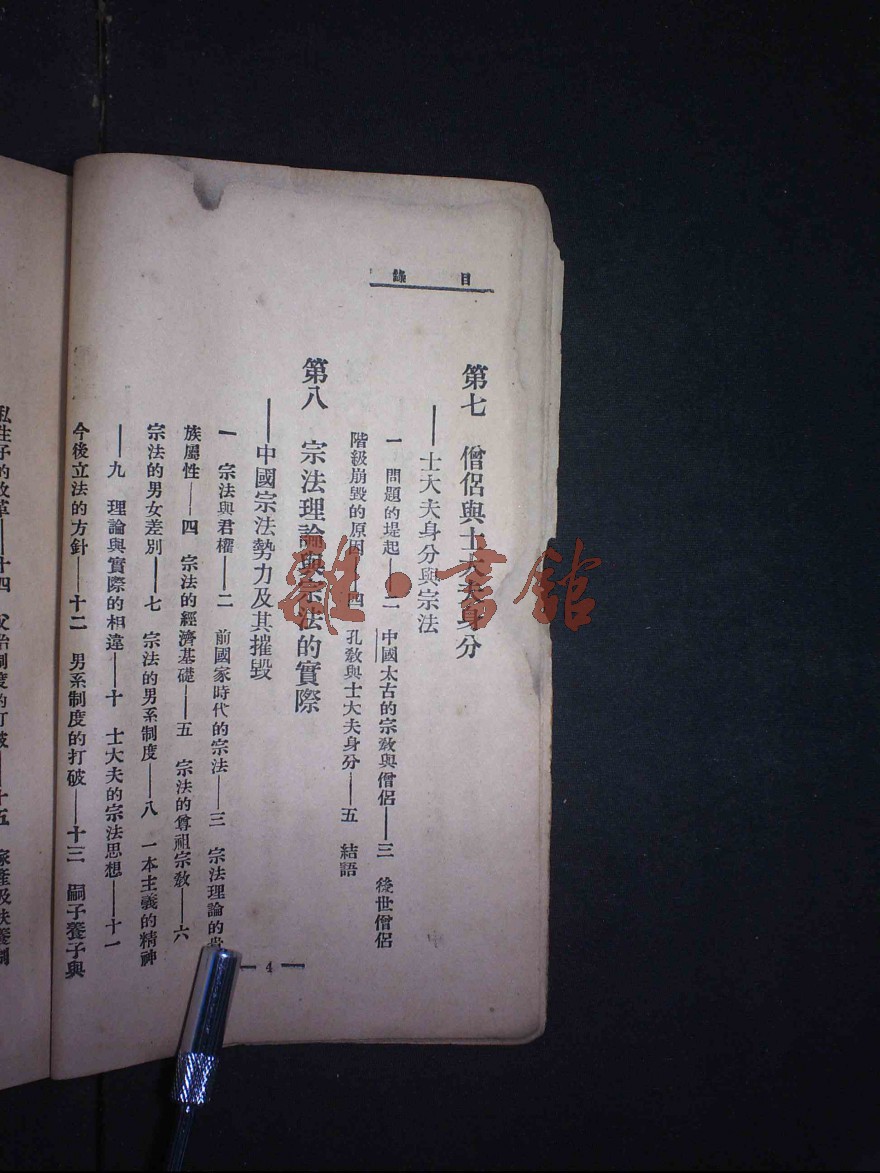 目錄
第七 僧侶與士大夫身分
——士大夫身分與宗法
一 問題的堤起——二 中國太古的宗教與僧侶——三 後世僧侶
階級崩毀的原因——四 孔教與士大夫身分——五 結語
第八 宗法理論與宗法的實際
——中國宗法勢力及其摧毀
一 宗法與君權——二 前國家時代的宗法——三 宗法理論的
族屬性——四 宗法的經濟基礎——五 宗法的尊祖宗教——六
宗法的男女差別——七 宗法的男系制度——八 一本主義的精神
——九 理論與實際的相違——十 士大夫的宗法思想——十一
今後立法的方針——十二 男系制度的打破——十三 嗣子養子與
私生子的改革——十四 父治制度的打破——十五 家產及扶養制
— 4 —
雜·書館